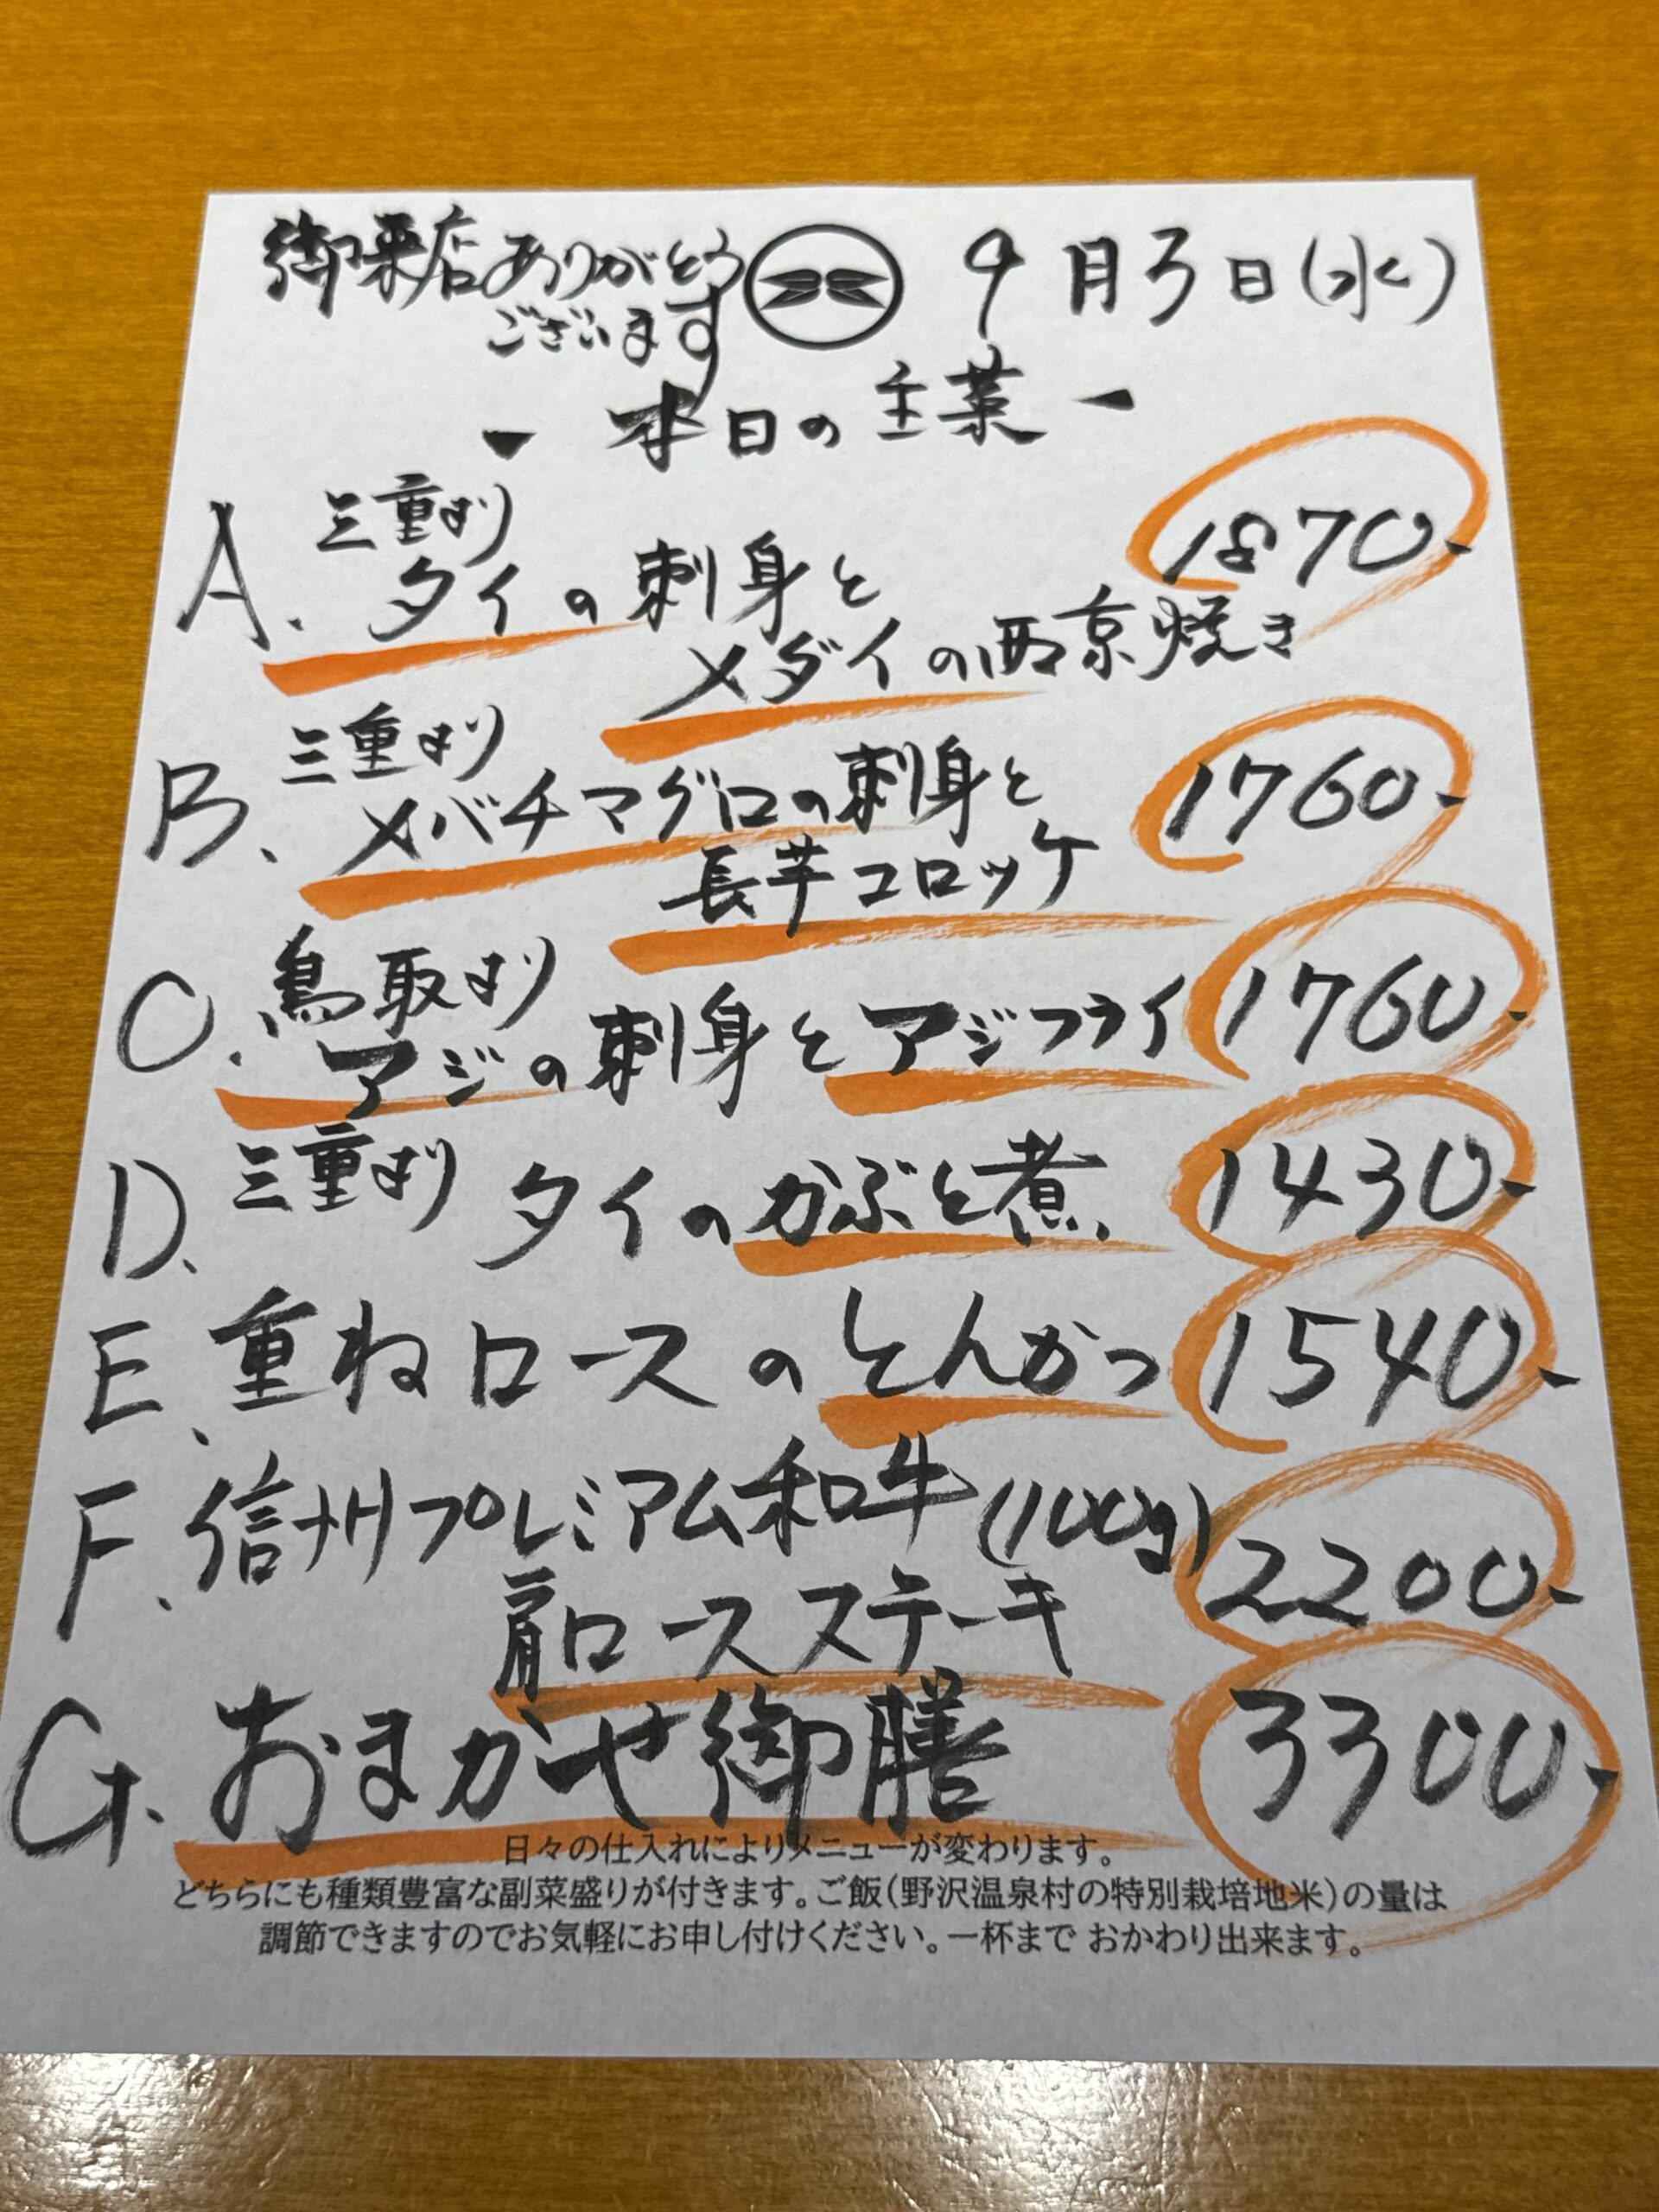 御来店ありがとう
ございます
9月3日(水)
- 本日の主菜 -
A. 三重より
タイの刺身と
メダイの西京焼き
1870-
B. 三重より
メバチマグロの刺身と
長芋コロッケ
1760-
C. 鳥取より
アジの刺身とアジフライ
1760-
D. 三重より タイのかぶと煮 1430-
E. 重ねロースのとんかつ 1540-
F. 信州プレミアム和牛(100g)
肩ロースステーキ
2200-
G. おまかせ御膳 3300-
日々の仕入れによりメニューが変わります。
どちらにも種類豊富な副菜盛りが付きます。ご飯(野沢温泉村の特別栽培地米)の量は
調節できますのでお気軽にお申し付けください。一杯まで おかわり出来ます。